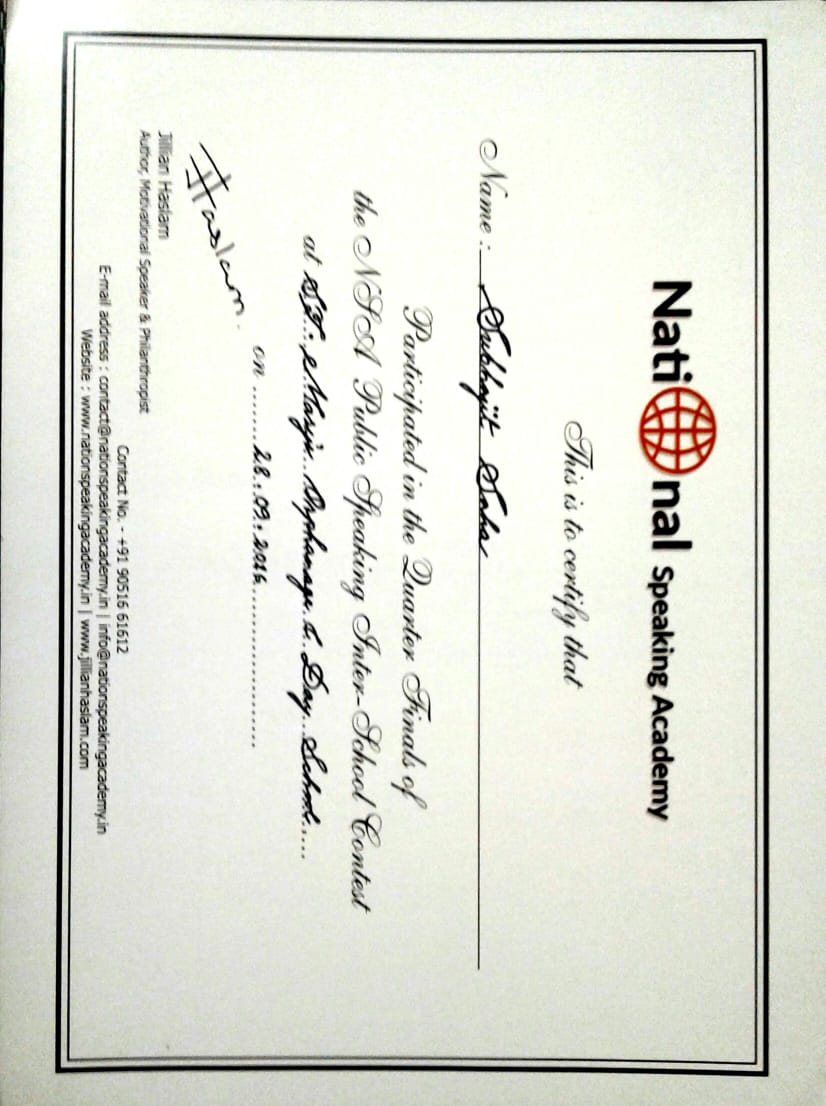 National Speaking Academy
This is to certify that
Name : Subhajit Saha
Participated in the Quarter Finals of
the NSA Public Speaking Inter-School Contest
at ST. Mary's Orphanage & Day School
on ....... 28.09.2016 .......
JHaslam.
Jillian Haslam
Author, Motivational Speaker & Philanthropist
Contact No. - +91 90516 61612
E-mail address : contact@nationspeakingacademy.in | info@nationspeakingacademy.in
Website : www.nationspeakingacademy.in | www.jillianhaslam.com